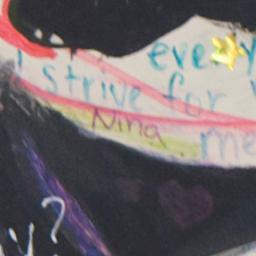 every
I strive for
Nina
me
y?